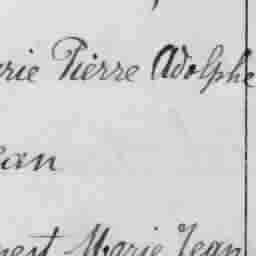 rie Pierre Adolphe
ean
nest Marie Jean